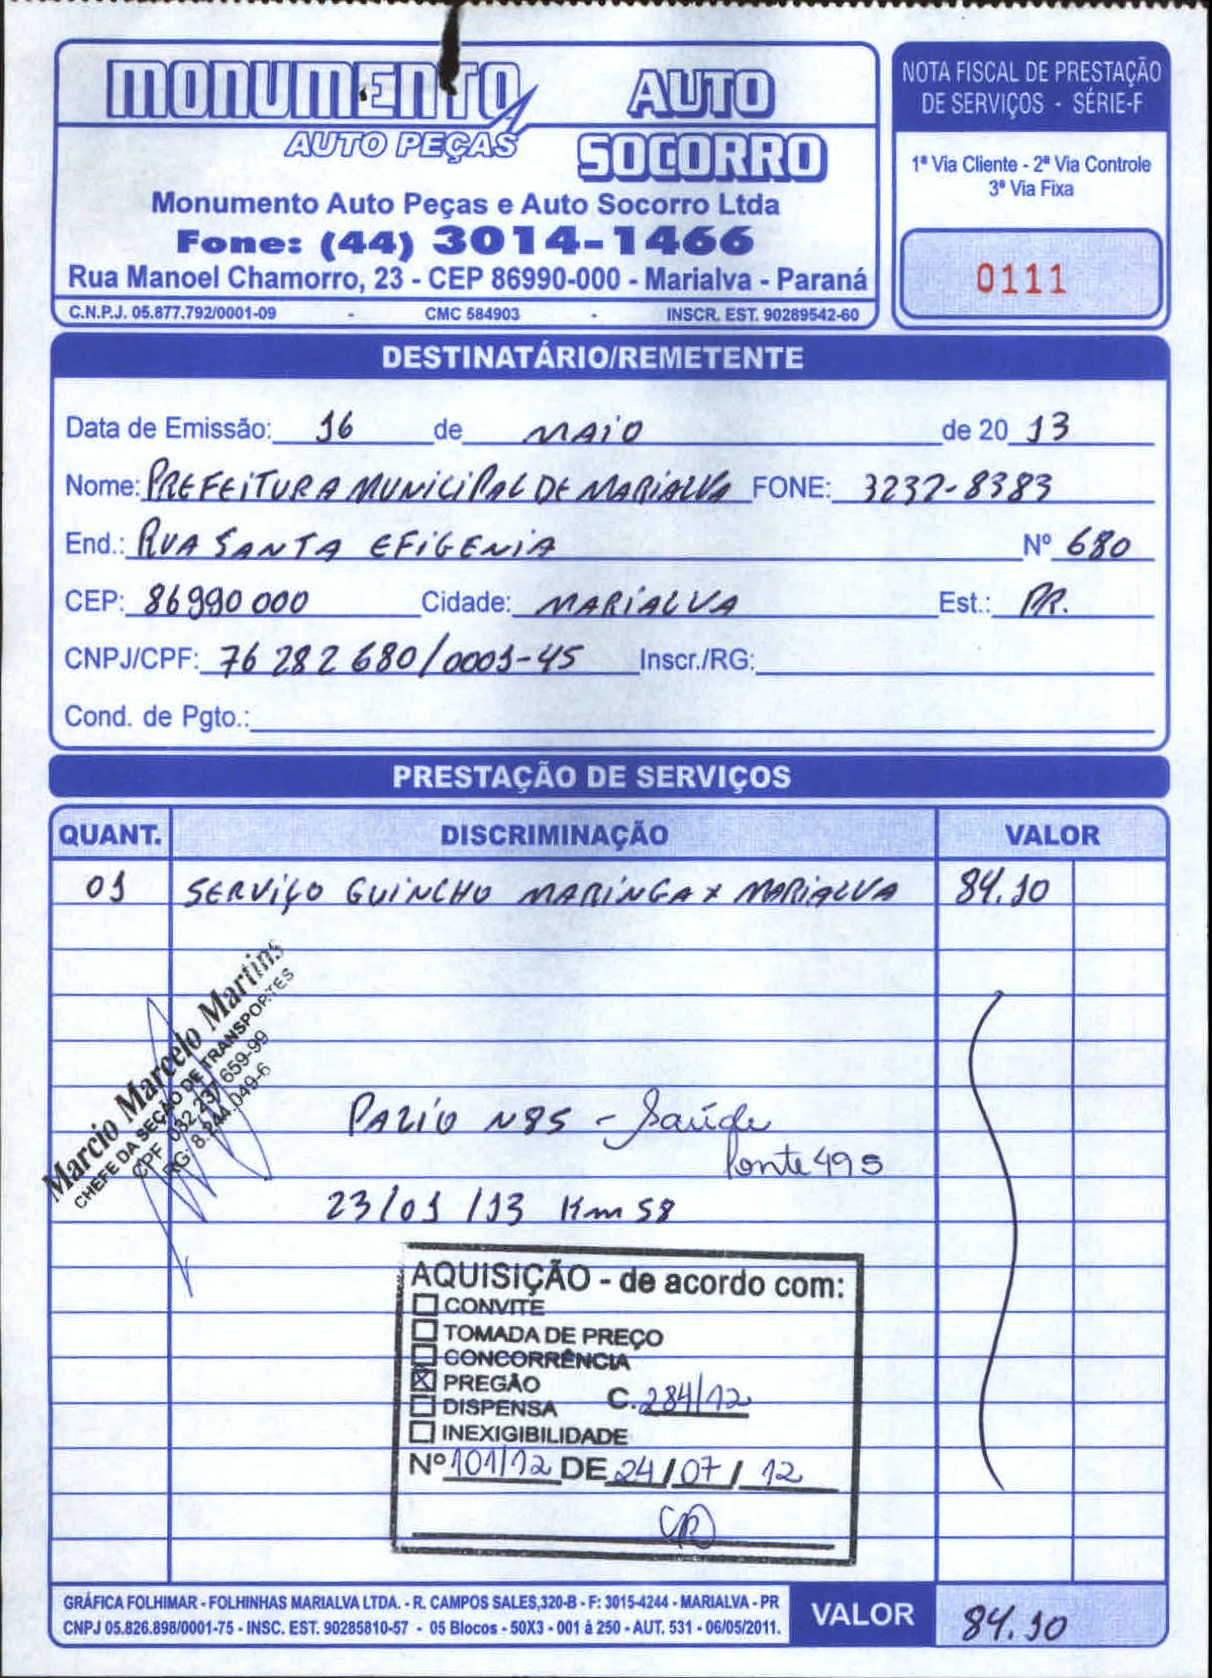 MONUMENTO
AUTO PEÇAS
AUTO
SOCORRO
Monumento Auto Peças e Auto Socorro Ltda
Fone: (44) 3014-1466
Rua Manoel Chamorro, 23 - CEP 86990-000 - Marialva - Paraná
C.N.P.J. 05.877.792/0001-09 - CMC 584903 - INSCR. EST. 90289542-60
NOTA FISCAL DE PRESTAÇÃO
DE SERVIÇOS - SÉRIE-F
1ª Via Cliente - 2ª Via Controle
3ª Via Fixa
0111
DESTINATÁRIO/REMETENTE
Data de Emissão: 16 de MAIO de 20 13
Nome: PREFEITURA MUNICIPAL DE MARIALVA FONE: 3232-8383
End.: RUA SANTA EFIGENIA Nº 680
CEP: 86990 000 Cidade: MARIALVA Est.: PR.
CNPJ/CPF: 76 282 680/0001-45 Inscr./RG:
Cond. de Pgto.:
PRESTAÇÃO DE SERVIÇOS
QUANT. DISCRIMINAÇÃO VALOR
01 SERVIÇO GUINCHO MARINGA x MARIALVA 84.10
Marcio Marcelo Martins
CHEFE DA SEÇÃO DE TRANSPORTES
CPF 032.237.659-99
RG 8.244.049-6
PALIO N85 - Saúde
fonte 495
23/01/13 Km 58
AQUISIÇÃO - de acordo com:
CONVITE
TOMADA DE PREÇO
CONCORRÊNCIA
X PREGÃO
C. 284/12
DISPENSA
INEXIGIBILIDADE
Nº 101/12 DE 24/07/12
GRÁFICA FOLHIMAR - FOLHINHAS MARIALVA LTDA. - R. CAMPOS SALES,320-B - F: 3015-4244 - MARIALVA - PR
CNPJ 05.826.898/0001-75 - INSC. EST. 90285810-57 - 05 Blocos - 50X3 - 001 à 250 - AUT. 531 - 06/05/2011.
VALOR 84.10